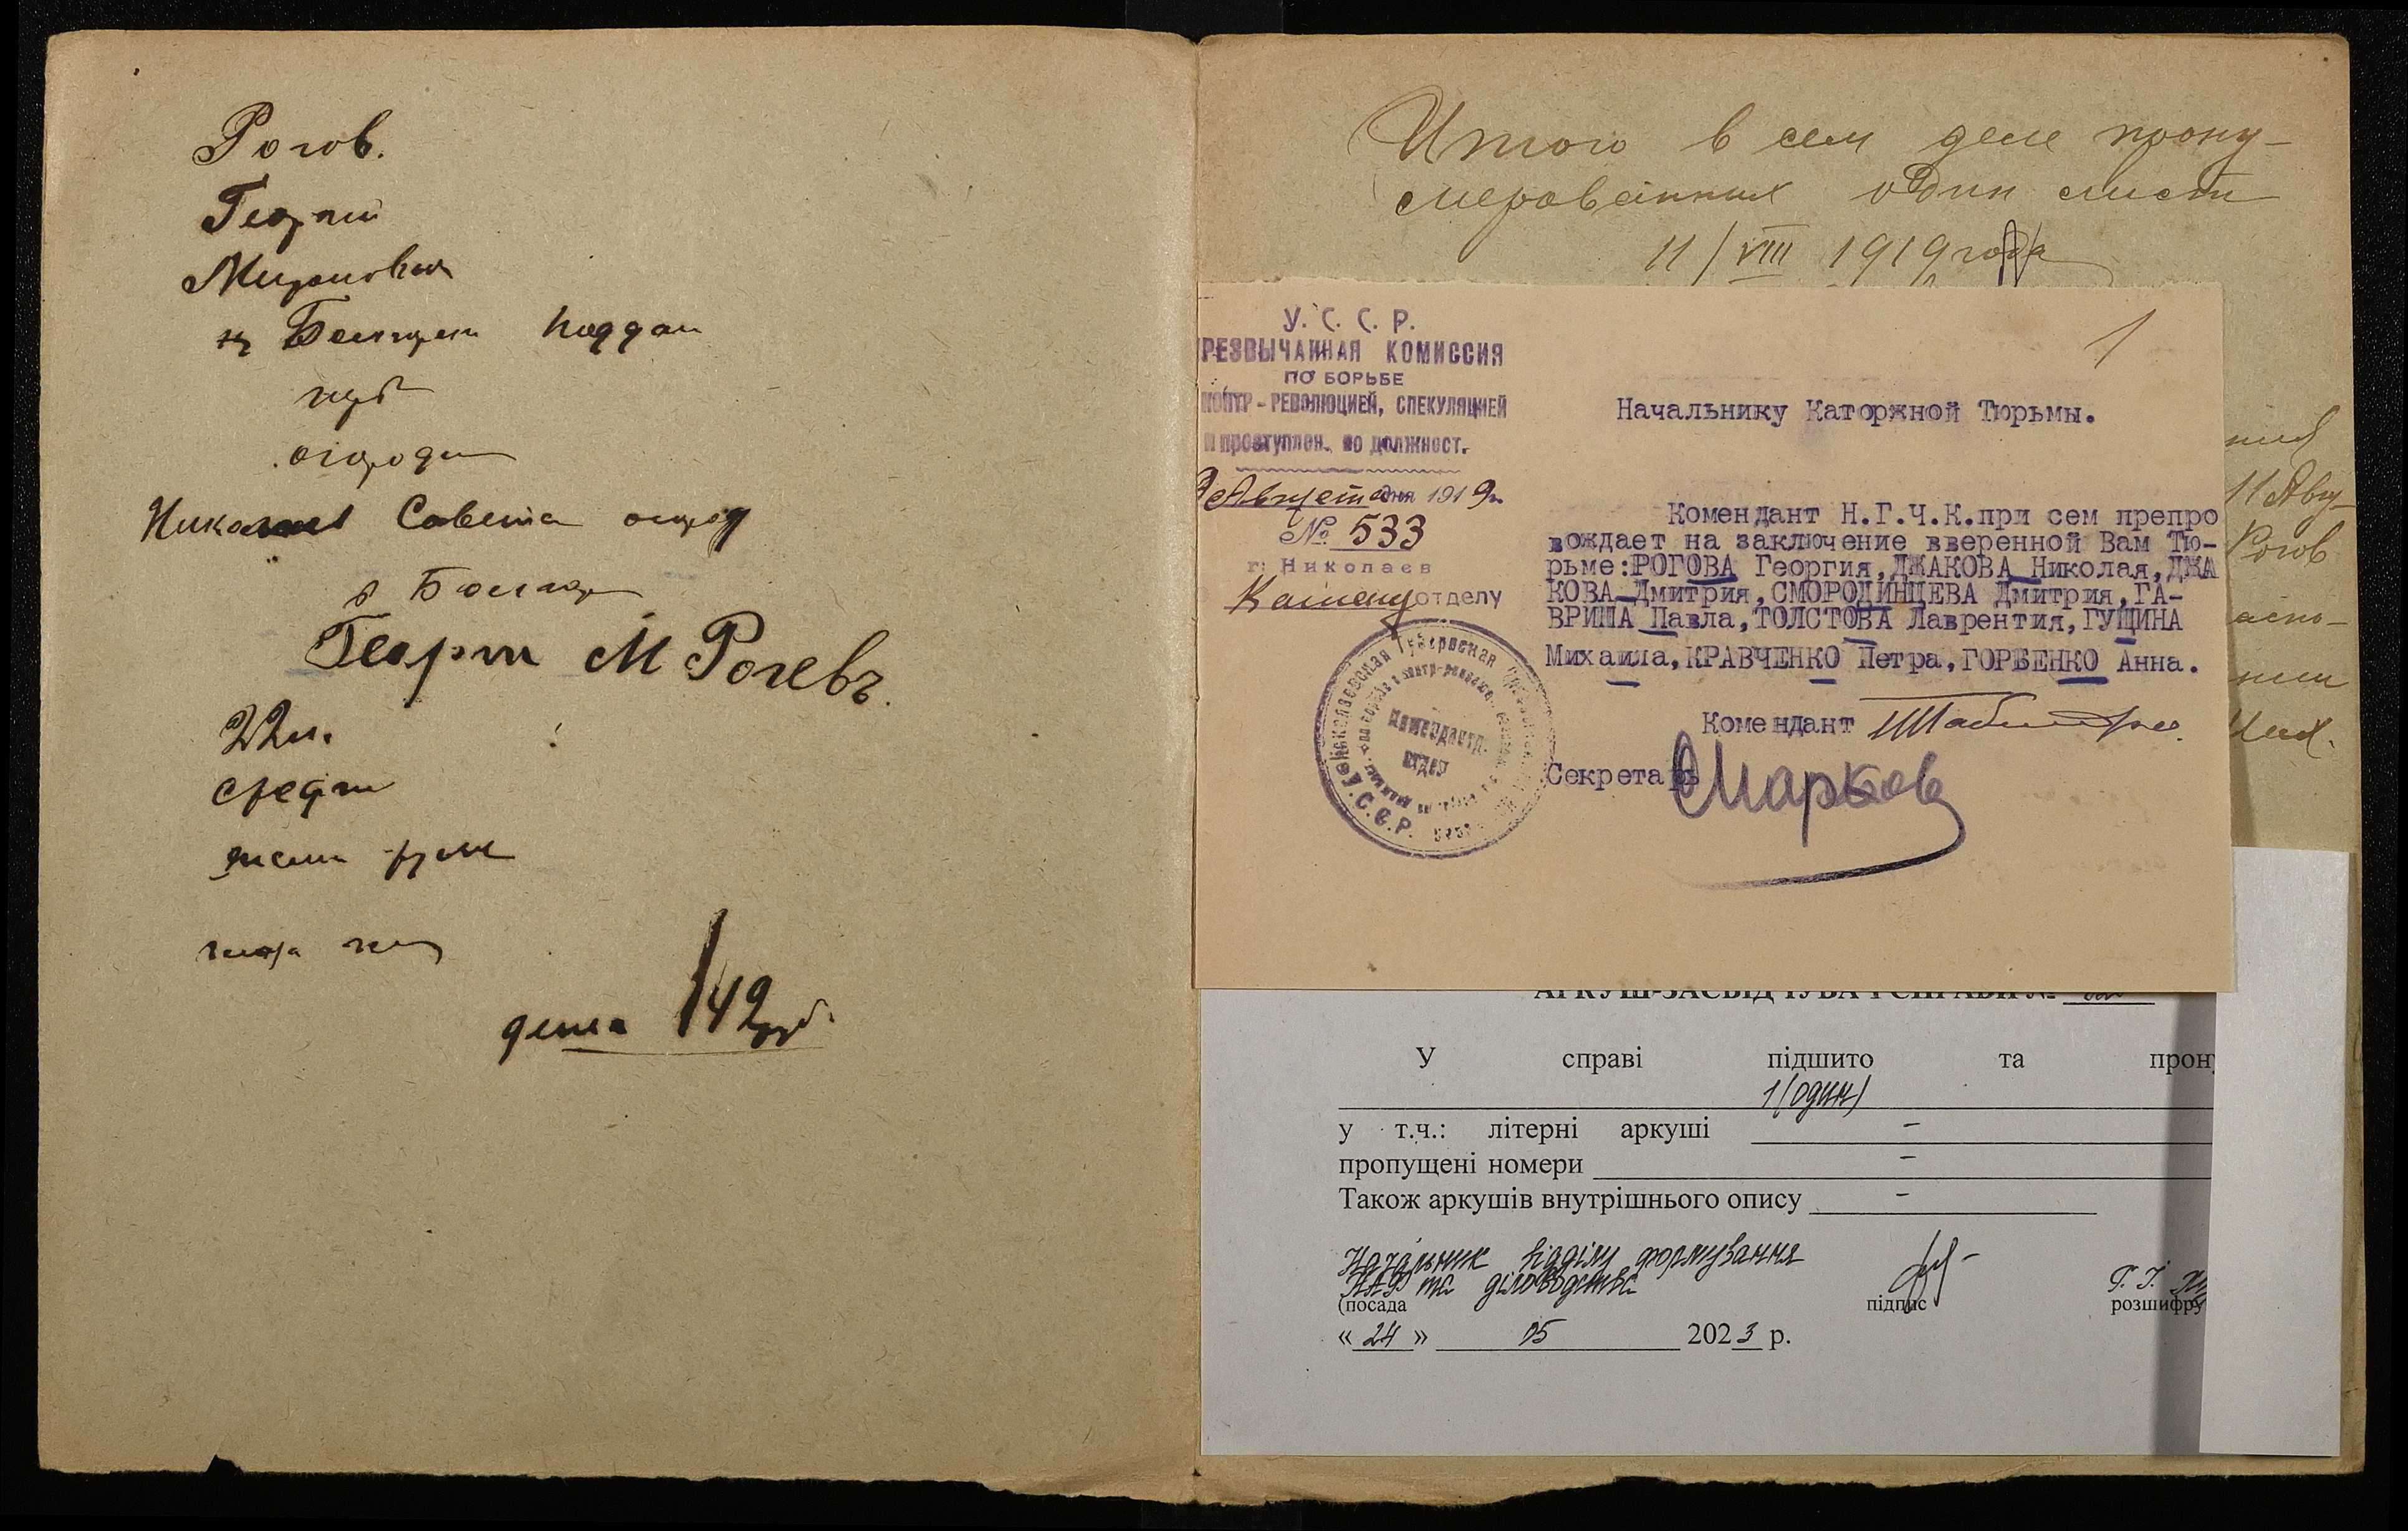 Рогов.
Георгий
Миронович
из Болгарии поддан
огородн
Николаев Совета огород
в Болгар
Георги М Рогевъ.
22 л.
средн
142 руб.
Итого в сем деле прону-
мерованных один лист
11/VIII 1919 года
1
У. С. С. Р.
РЕЗВЫЧАЙНАЯ КОМИССИЯ
ПО БОРЬБЕ
КОНТР-РЕВОЛЮЦИЕЙ, СПЕКУЛЯЦИЕЙ
и проступлен. по должност.
Августа дня 1919 г.
№ 533
г. Николаев
Коменд отделу
Начальнику Каторжной Тюрьмы.
Комендант Н.Г.Ч.К.при сем препро
вождает на заключение вверенной Вам Тю-
рьме:РОГОВА Георгия,ДЖАКОВА Николая,ДЖА
КОВА Дмитрия,СМОРОДИНЦЕВА Дмитрия,ГА-
ВРИША Павла,ТОЛСТОВА Лаврентия,ГУЩИНА
Михаила,КРАВЧЕНКО Петра,ГОРБЕНКО Анна.
Комендант
Секретарь Марков
Николаевская Губернская
Комендантс.
отдел
У.С.С.Р.
11 Авгу-
Рогов
АРКУШ-ЗАСВІДЧУВАЧ СПРАВИ №
У справі підшито та прону
1 (один)
у т.ч.: літерні аркуші –
пропущені номери –
Також аркушів внутрішнього опису –
Начальник відділу формування
НАФ та діловодства
(посада підпис розшифру
« 24 » 05 2023 р.